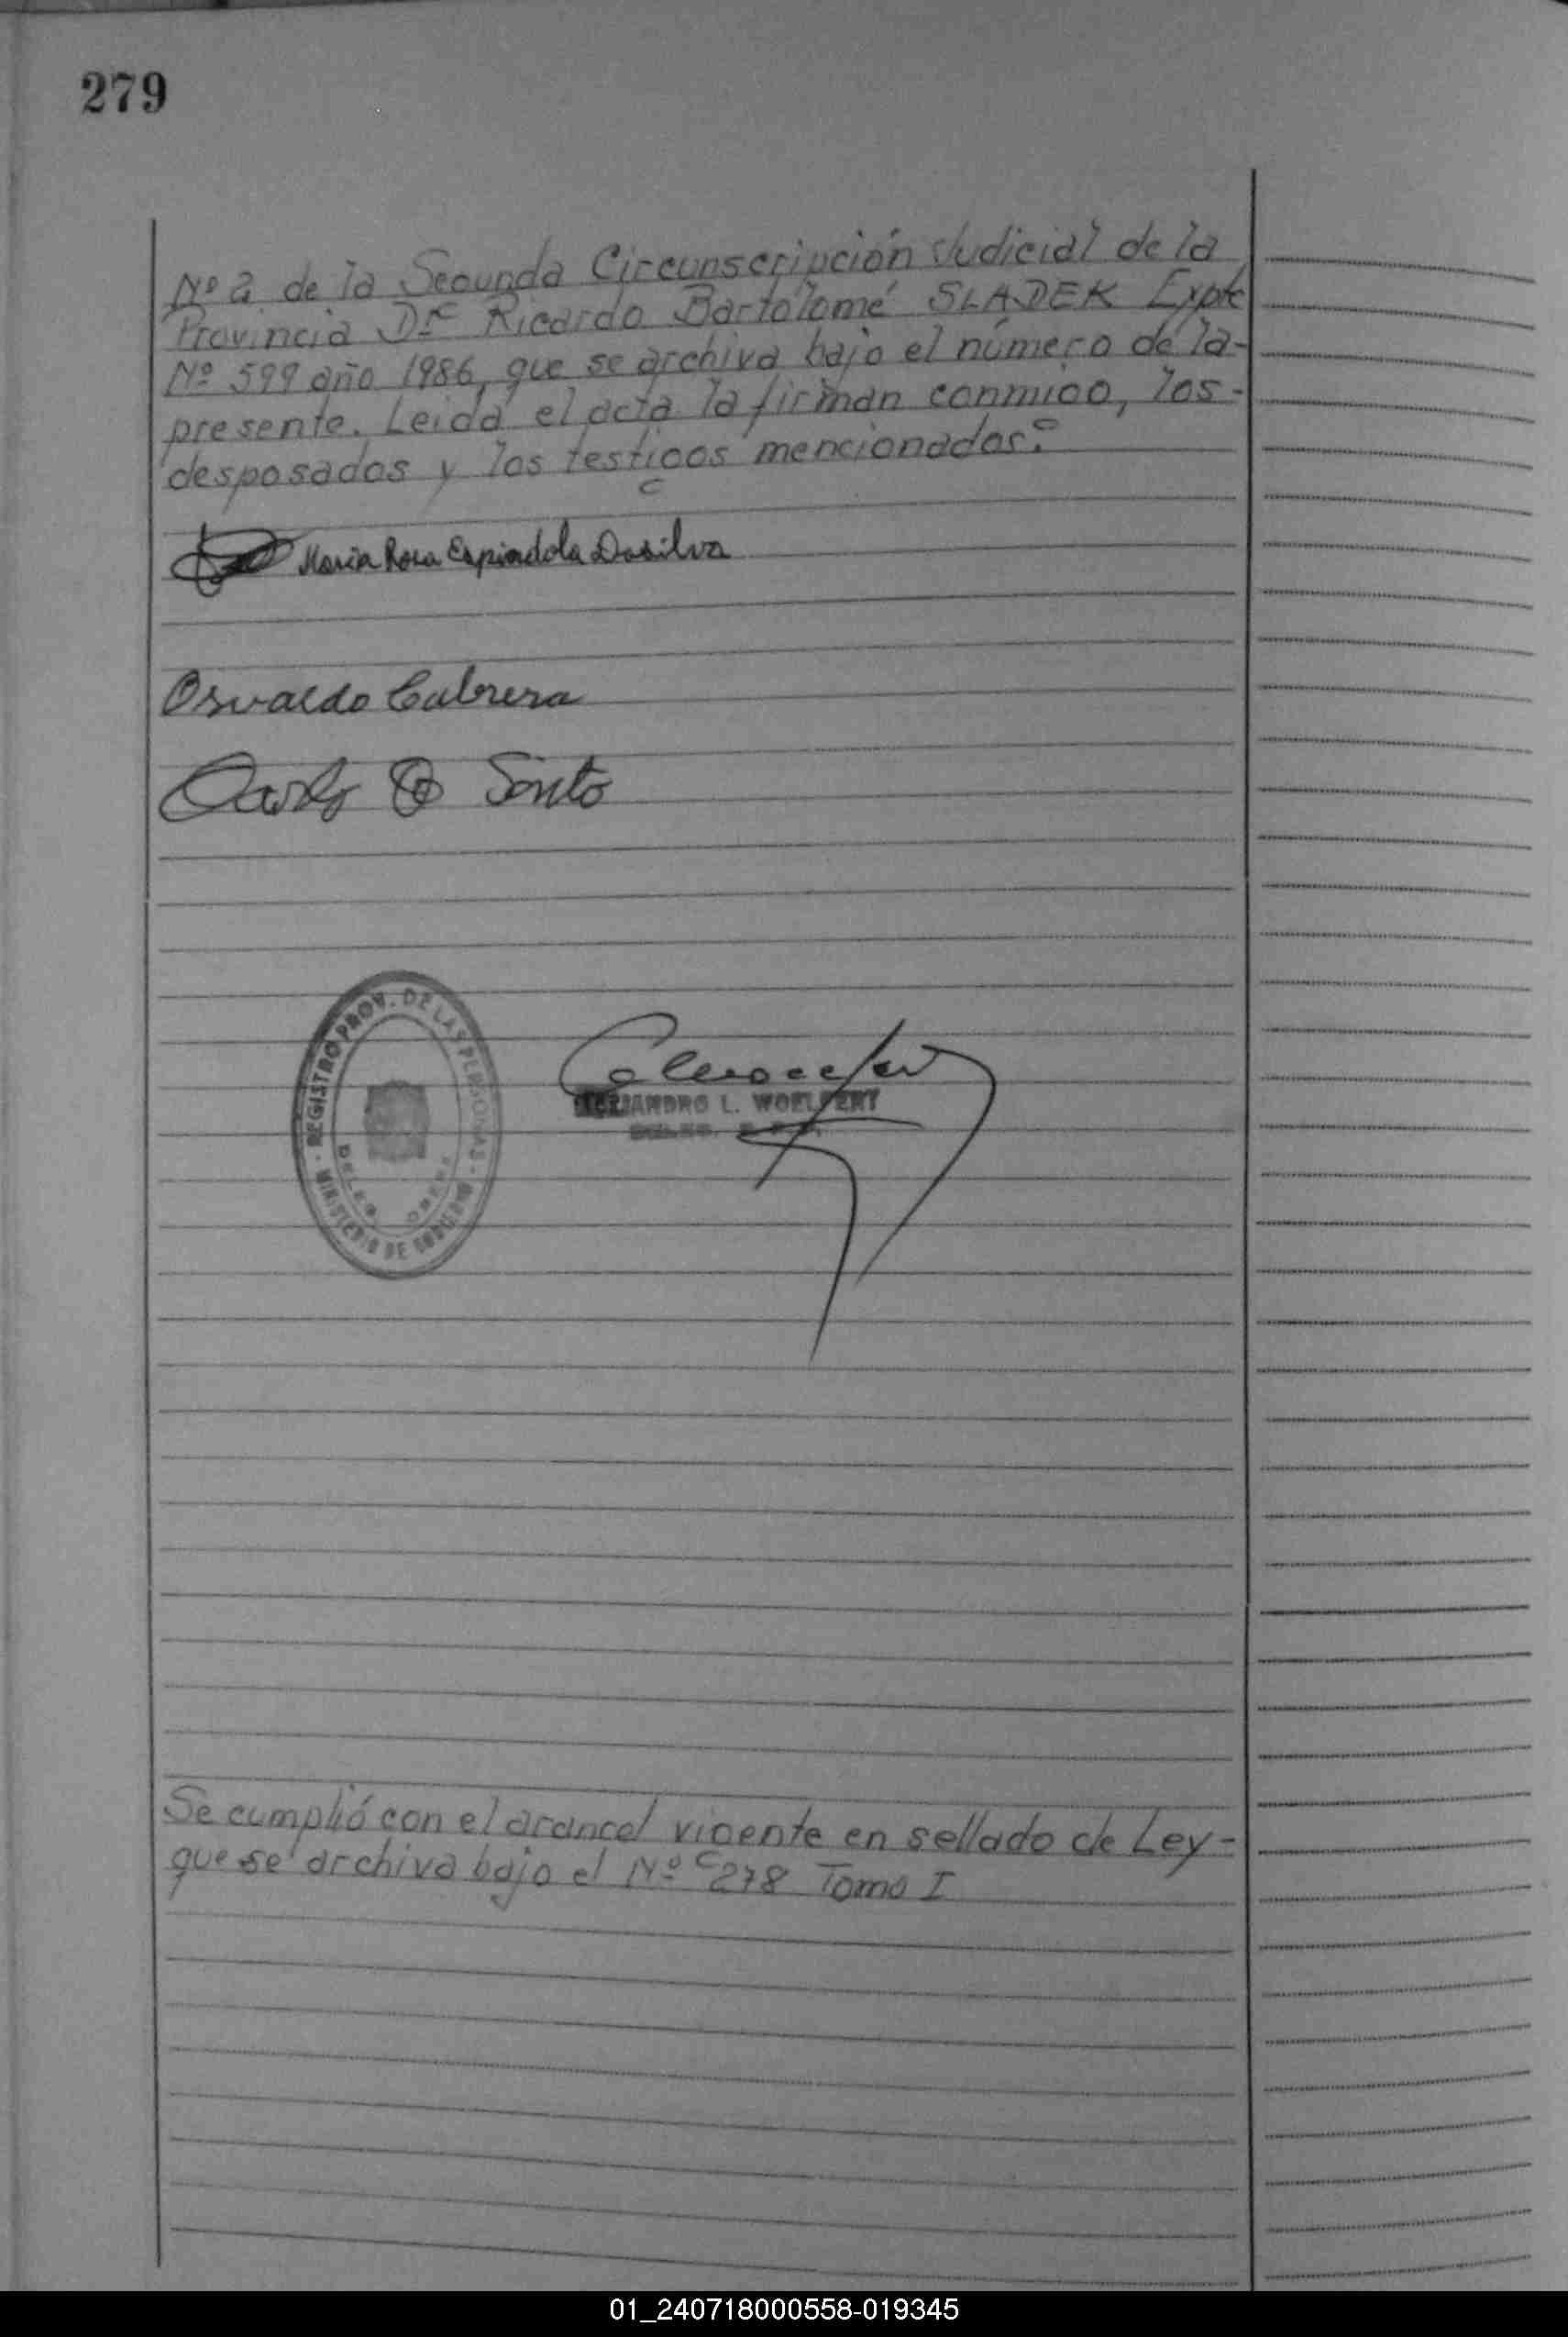 279
Nº 2 de la Segunda Circunscripción Judicial de la
Provincia Dr Ricardo Bartolomé SLADEK Expte
Nº 599 año 1986, que se archiva bajo el número de la-
presente. Leida el acta la firman conmigo, los-
desposados y los testigos mencionados:
Maria Rosa Espindola Dasilva
Osvaldo Cabrera
Carlos Souto
REGISTRO PROV. DE LAS PERSONAS - MINISTERIO DE GOBIERNO
DELEG. OBERA
ALEJANDRO L. WOELFERT
Se cumplió con el arancel vigente en sellado de Ley-
que se archiva bajo el Nº 278 Tomo I
01_240718000558-019345